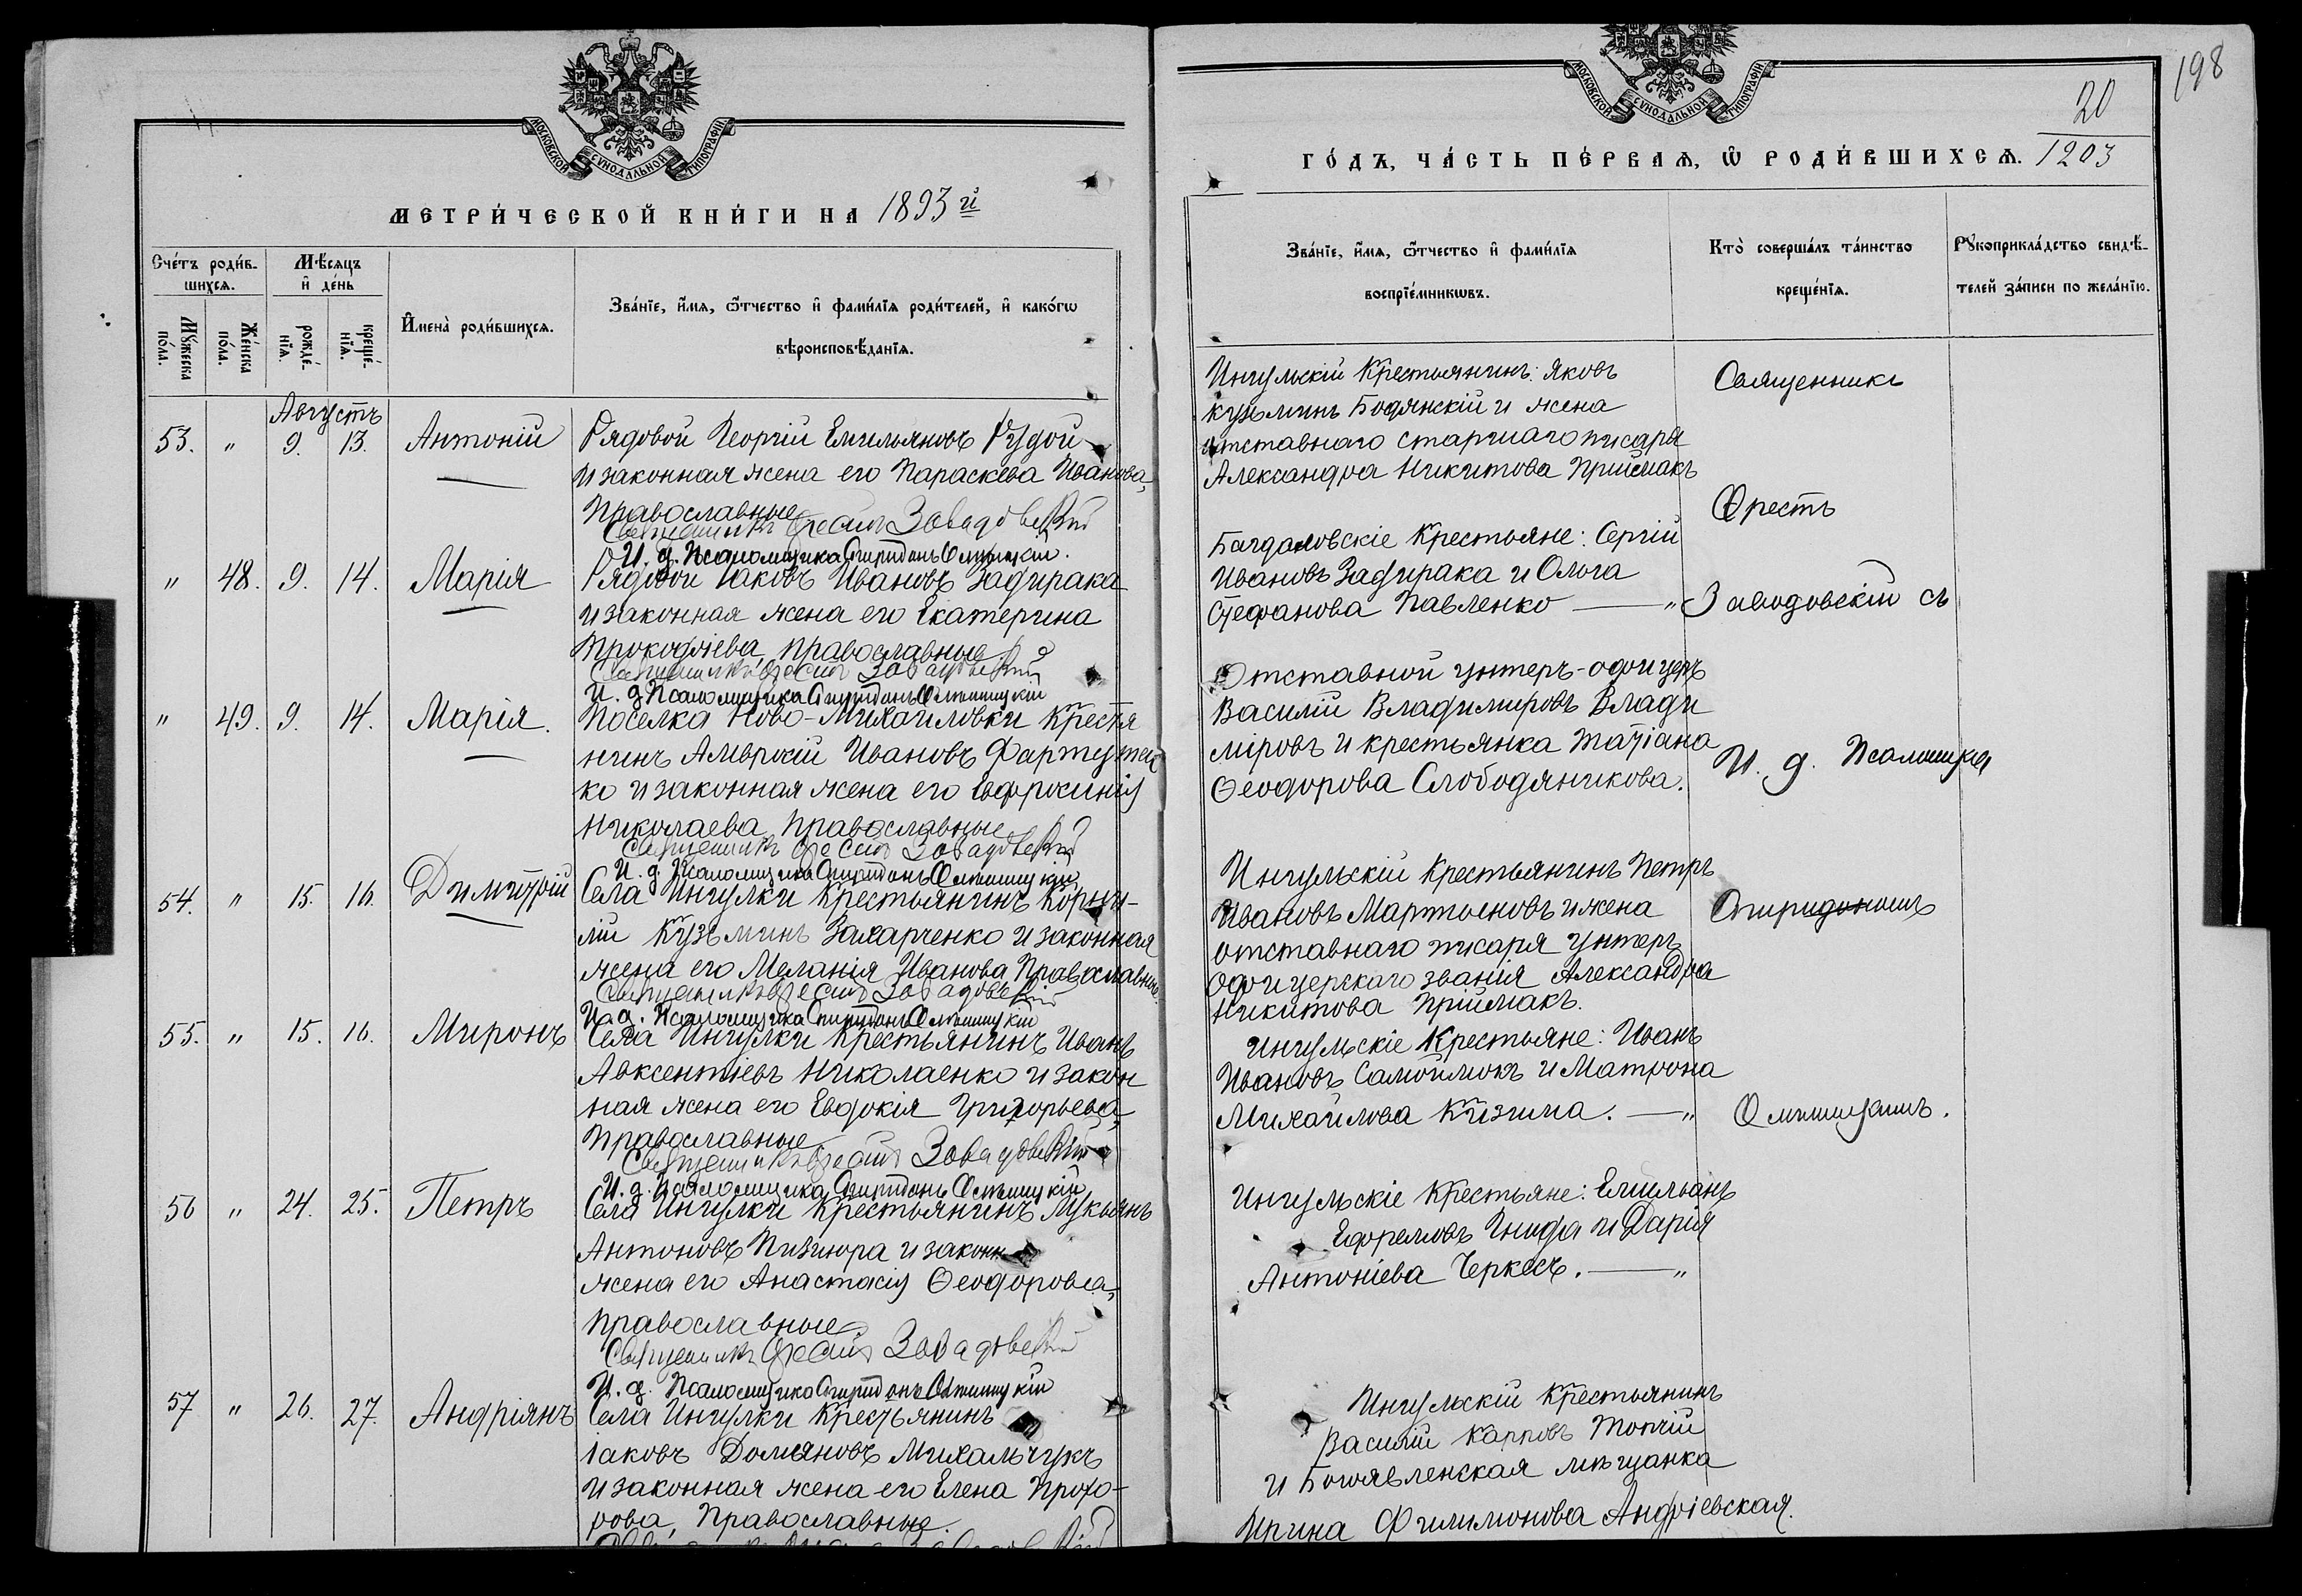 МОСКОВСКОЙ СѴНОДАЛЬНОЙ ТИПОГРАФІИ
МЕТРИ́ЧЕСКОЙ КНИ́ГИ НА 1893 й
Сче́тъ роди́в-
шихсѧ.
Мѣ́сѧцъ
и҆ де́нь
Мꙋ́жеска по́ла.
Же́нска по́ла.
рожде́-нїѧ.
креще́-нїѧ.
И҆мена̀ роди́вшихсѧ.
Зва́нїе, и҆́мѧ, ѻ҆́тчество и҆ фами́лїѧ роди́телей, и҆ како́гѡ
вѣроисповѣ́данїѧ.
Августъ
53. " 9. 13. Антоній
Рядовой Георгій Емильяновъ Рудой
и законная жена его Параскева Иванова,
Православные
Священникъ Орестъ Завадовскій
И. д. Псаломщика Спиридонъ
" 48. 9. 14. Марія
Рядовой Іаковъ Ивановъ Задирака
и законная жена его Екатерина
Прокофіева, православные
Священникъ Орестъ Завадовскій
И. д. Псаломщика Спиридонъ
" 49. 9. 14. Марія.
Поселка Ново-Михайловки крестя
нинъ Амвросій Ивановъ Фартушен
ко и законная жена его Евфросинія
Николаева, православные
Священникъ Орестъ Завадовскій
И. д. Псаломщика Спиридонъ
54. " 15. 16. Димитрій
Села Ингулки крестьянинъ Корни-
лій Кузьминъ Захарченко и законная
жена его Меланія Иванова Православные
Священникъ Орестъ Завадовскій
И. д. Псаломщика Спиридонъ
55. " 15. 16. Миронъ
Села Ингулки крестьянинъ Иванъ
Авксентіевъ Николаенко и закон
ная жена его Евдокія Григорьева,
Православные
Священникъ Орестъ Завадовскій
И. д. Псаломщика Спиридонъ
56 " 24. 25. Петръ
Села Ингулки крестьянинъ Лукьянъ
Антоновъ Пизюра и законн
жена его Анастасія Ѳеодорова,
православные
Священникъ Орестъ Завадовскій
И. д. Псаломщика Спиридонъ
57 " 26. 27. Андріянъ
Села Ингулки Крестьянинъ
Іаковъ Домяновъ Михальчукъ
и законная жена его Елена Прохо-
рова, Православные.
198
20
1203
МОСКОВСКОЙ СѴНОДАЛЬНОЙ ТИПОГРАФІИ
ГО́ДЪ, ЧА́СТЬ ПЕ́РВАѦ, Ѡ҆ РОДИ́ВШИХСѦ.
Зва́нїе, и҆́мѧ, ѻ҆́тчество и҆ фами́лїѧ
воспрїе́мникѡвъ.
Кто̀ соверша́лъ та́инство
креще́нїѧ.
Рꙋкоприкла́дство свидѣ́-
телей за́писи по жела́нїю.
Ингульскій Крестьянинъ: Яковъ
Кузьминъ Бодянскій и жена
отставнаго старшаго писаря
Александра Никитова Приймакъ
Багдаловскіе Крестьяне: Сергій
Ивановъ Задирака и Ольга
Стефанова Павленко — "
Отставной унтеръ-офицеръ
Василій Владимировъ Влади
міровъ и крестьянка Татіана
Ѳеодорова Слободяникова.
Ингульскій Крестьянинъ Петръ
Ивановъ Мартыновъ и жена
отставнаго писаря унтеръ
офицерскаго званія Александра
Никитова Приймакъ.
Ингульскіе Крестьяне: Иванъ
Ивановъ Самойлюкъ и Матрона
Михайлова Кизима. — "
Ингульскіе Крестьяне: Емильянъ
Ефремовъ Гнида и Дарія
Антоніева Черкесъ. — "
Ингульскій Крестьянинъ
Василій Карповъ Топчій
и Богоявленская мѣщанка
Ирина Филимонова Андріевская.
Священникъ
Орестъ
Заводовскій съ
И. д. Псаломщика
Спиридономъ